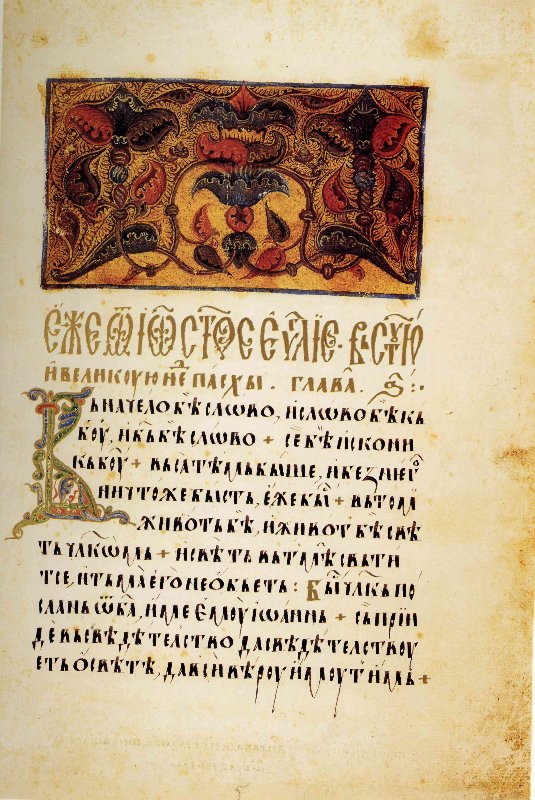 Еже ѿ іѡ ст҃ое е҃ѵліе · въ ст҃оую
и великоую н҃е пасхы. глава. а҃ :·
Въ начело бѣ слово, и слово бѣ къ
б҃оу, и б҃ъ бѣ слово + се бѣ искони
къ б҃оу + и вса тѣмь быше, и без него
ничтоже бысть, еже бы + въ томь
животь бѣ, и живот бѣ свѣ
ть чл҃комь + и свѣть въ тмѣ свьти
тсе, и тьма его не обьеть : Бы чл҃кь по
слань ѿ б҃а, име емоу їѡаннь + сь прїи
де въ сведѣтелство да сведѣтелствоу
еть ѡ свѣтѣ, да вси вѣроу имоуть имь +